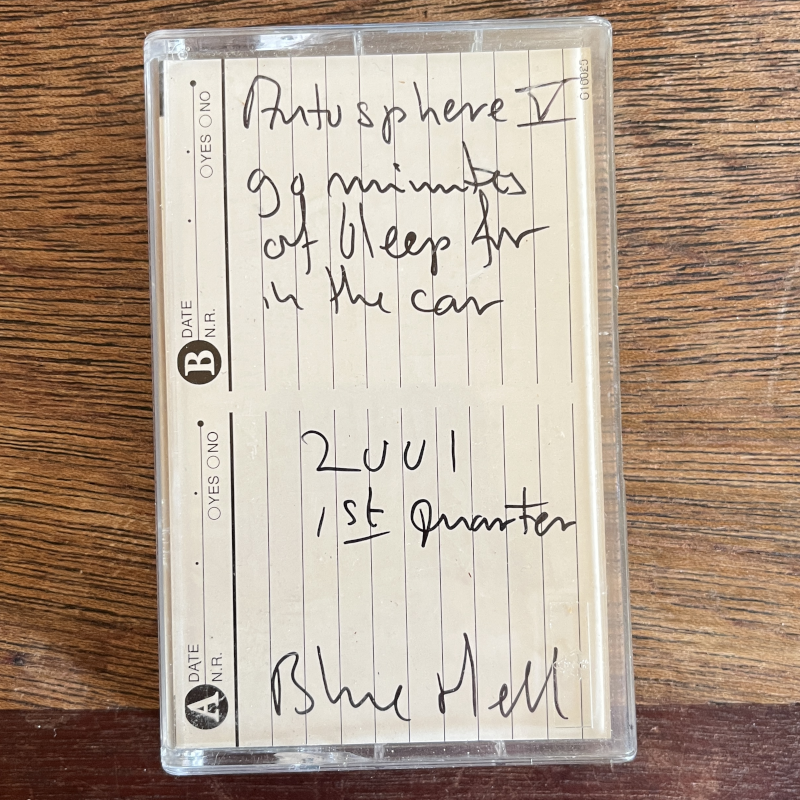 Autosphere V
90 minutes
of bleep for
in the car
2001
1st Quarter
Blue Hell
B DATE YES NO
N.R.
A DATE YES NO
N.R.